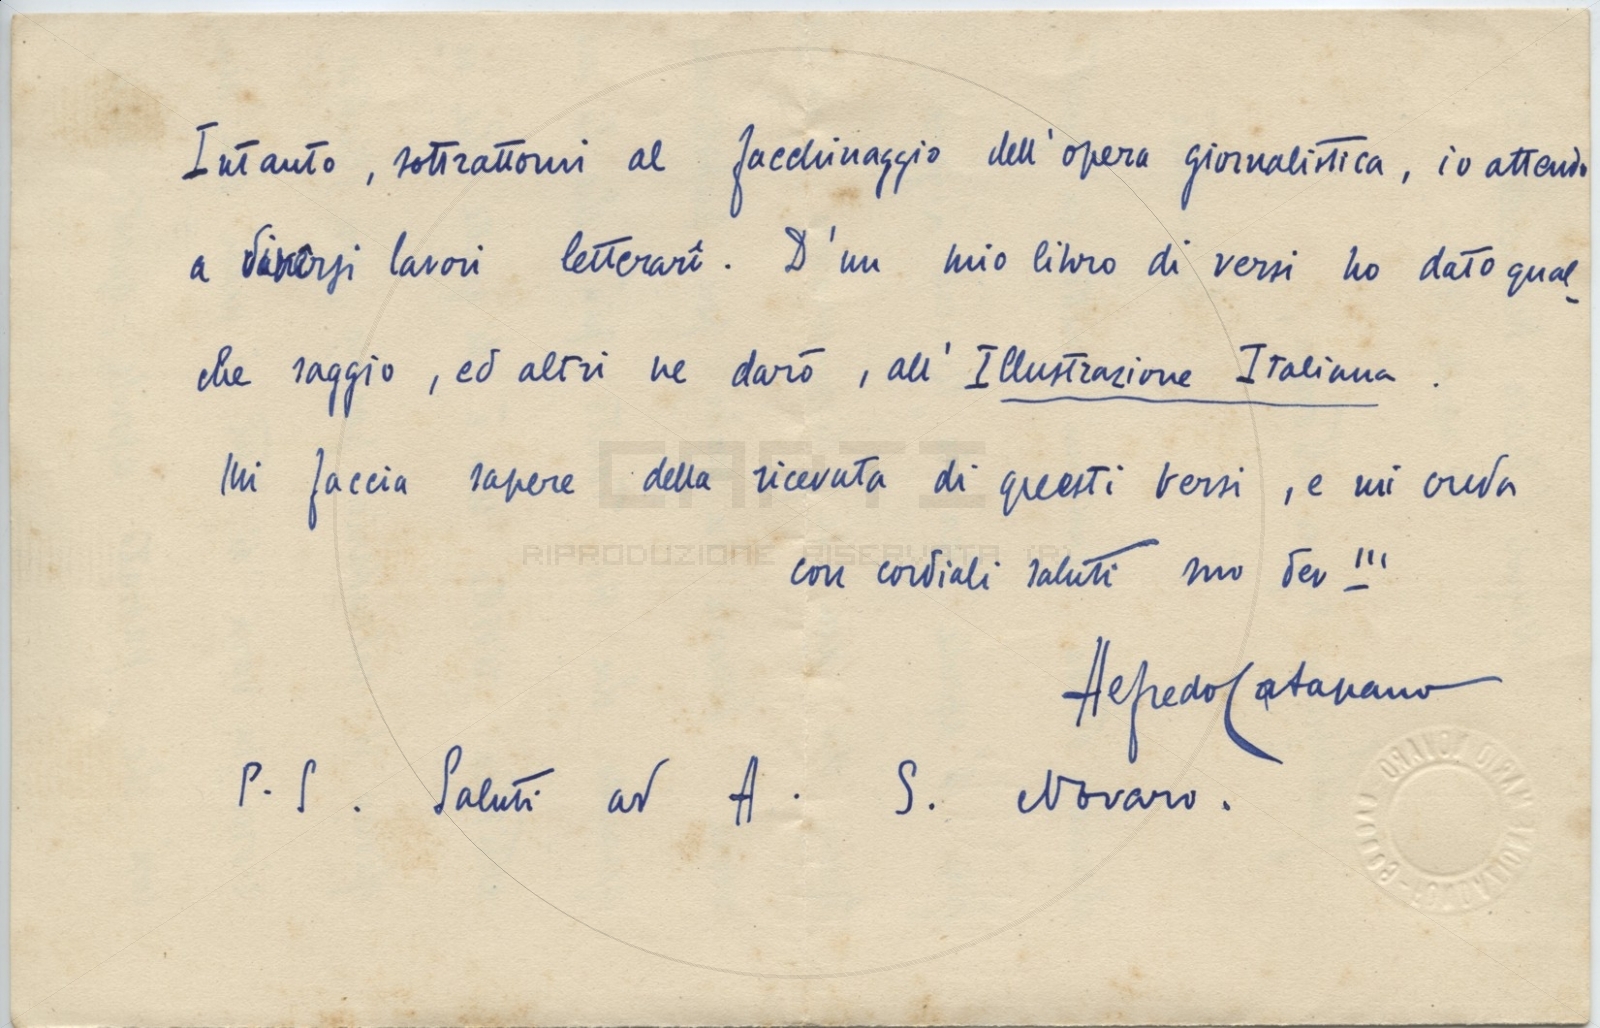 Intanto, sottrattomi al facchinaggio dell'opera giornalistica, io attendo
a diversi lavori letterarî. D'un mio libro di versi ho dato qual-
che saggio, ed altri ne darò, all'Illustrazione Italiana.
Mi faccia sapere della ricevuta di questi versi, e mi creda
CARTI
RIPRODUZIONE RISERVATA (R)
con cordiali saluti suo dev
Alfredo Catapano
P.S. Saluti ad A. S. Novaro.